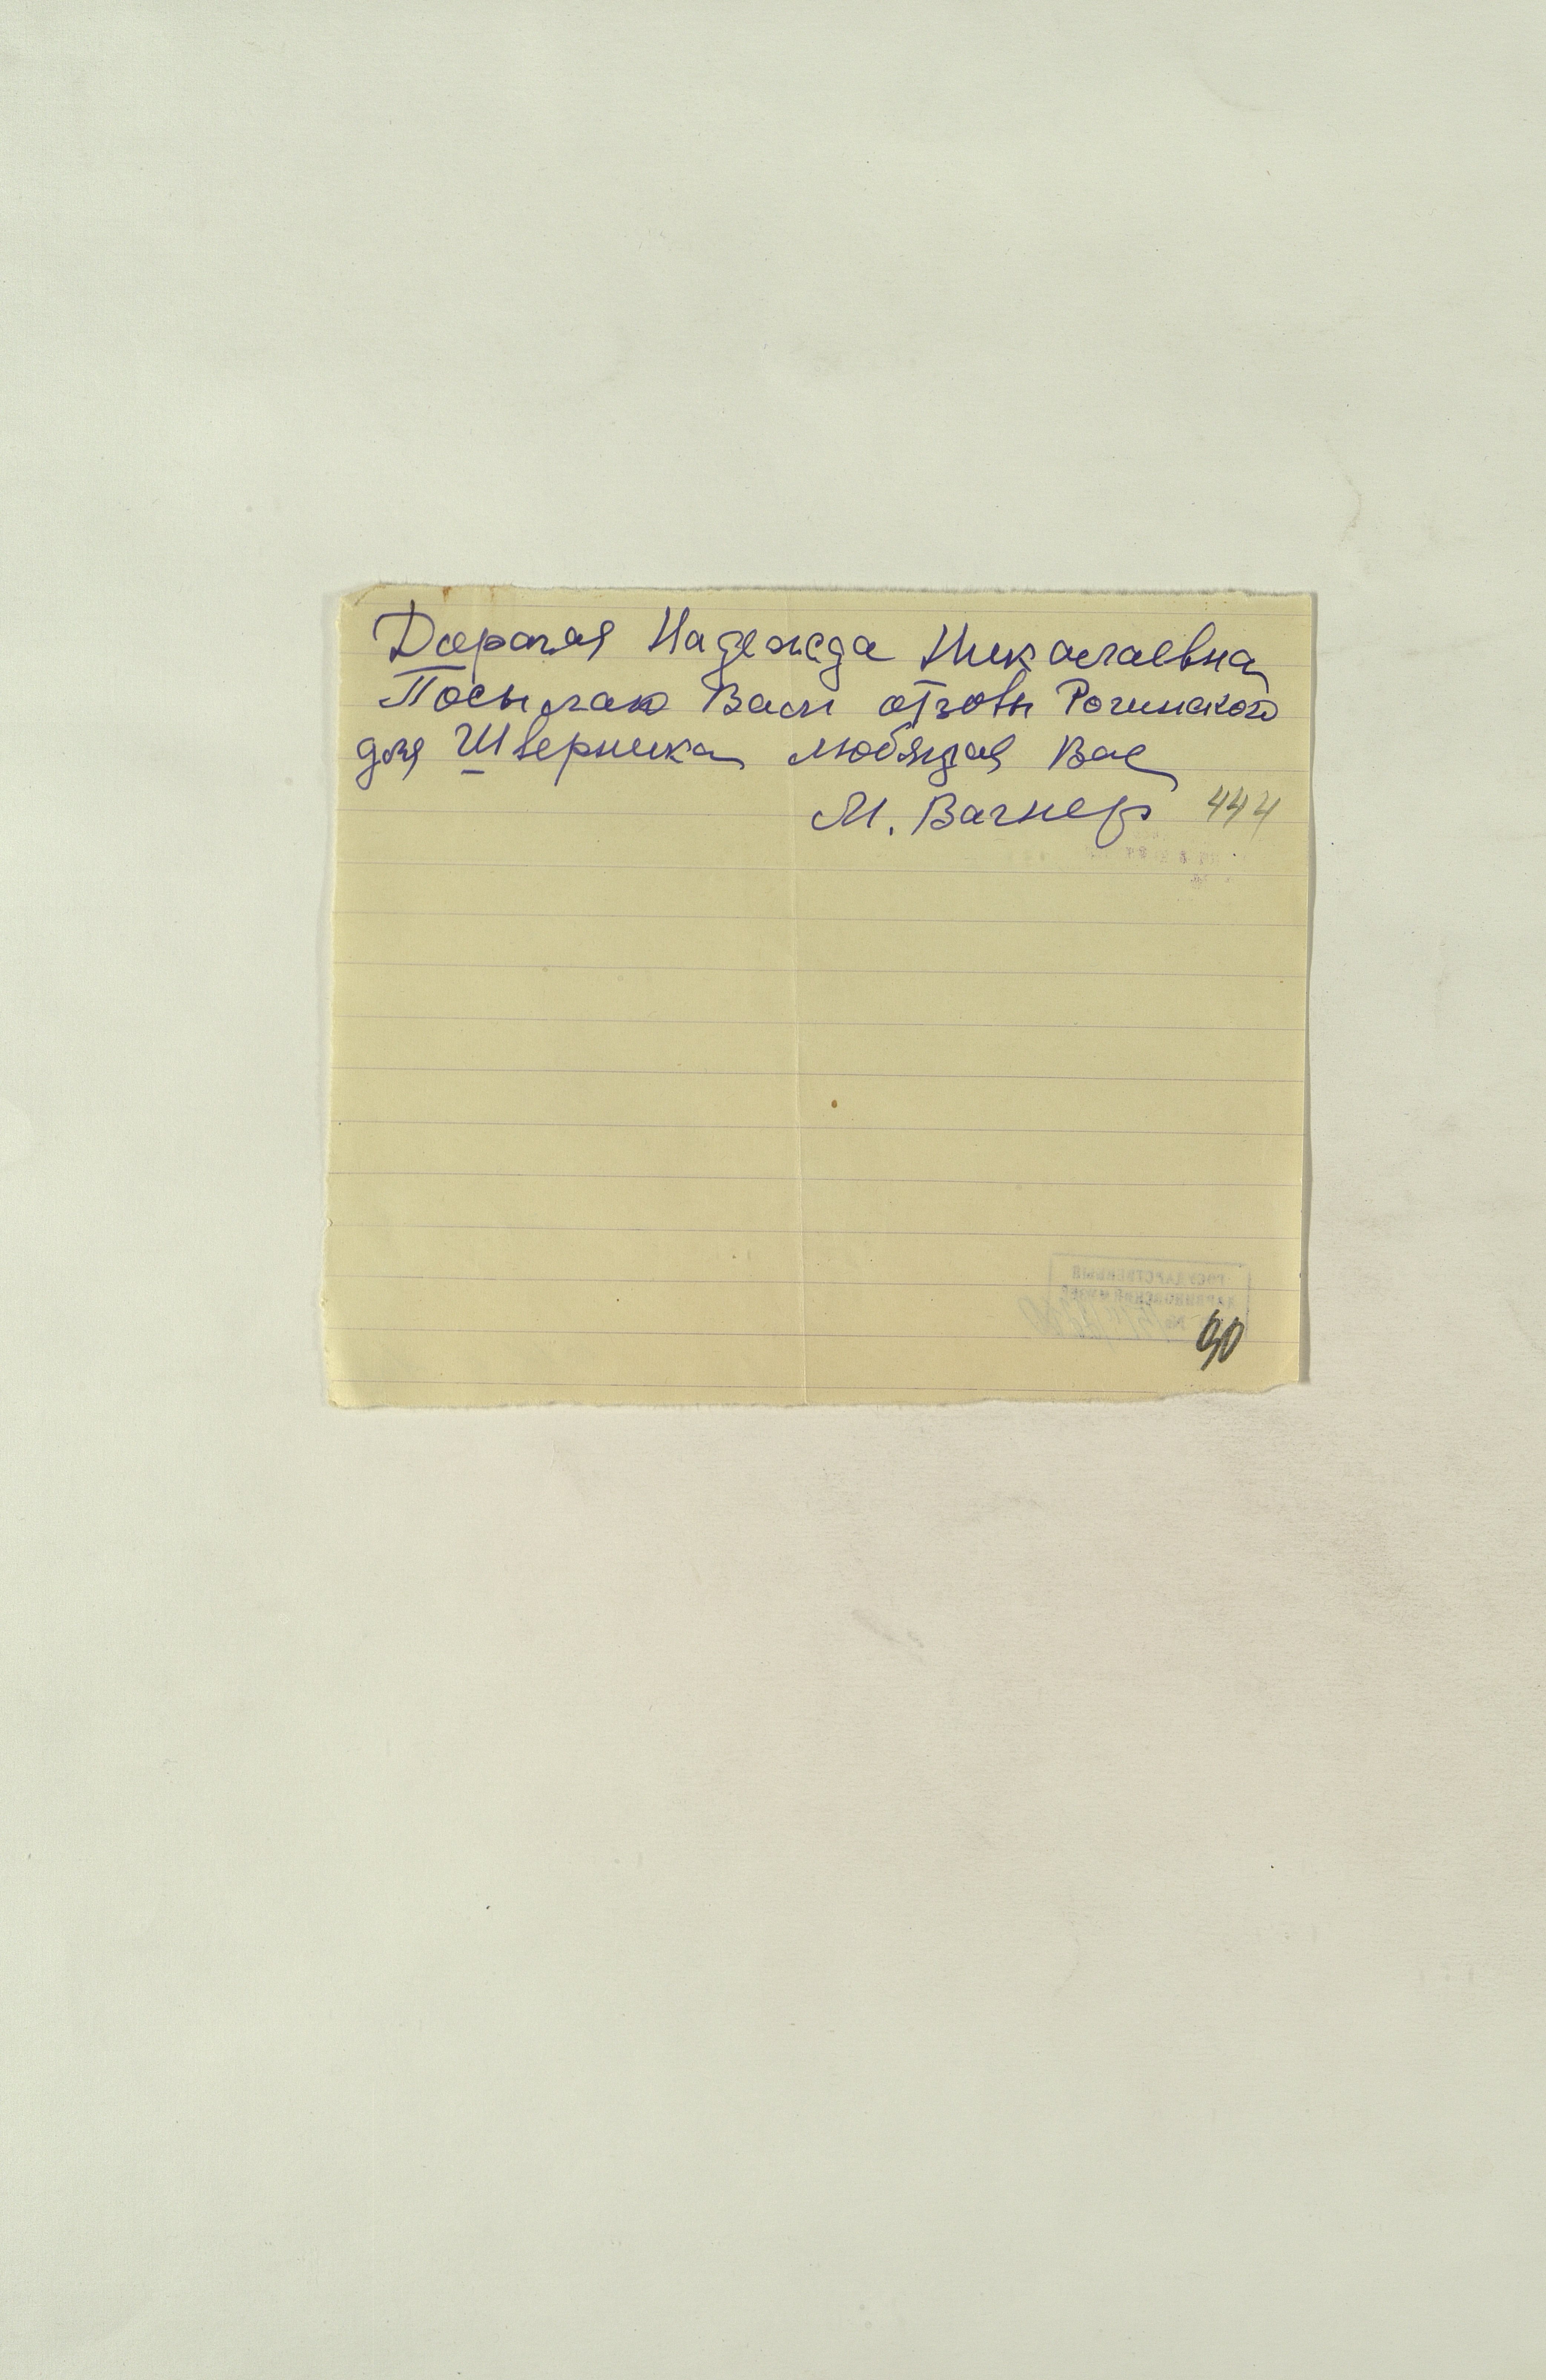 Дорогая Надежда Николаевна
Посылаю Вам отзовы Рогинского
для Шверника любящая Вас
М. Вагнер 444
ГОСУДАРСТВЕННЫЙ
ДАРВИНОВСКИЙ МУЗЕЙ
№
90